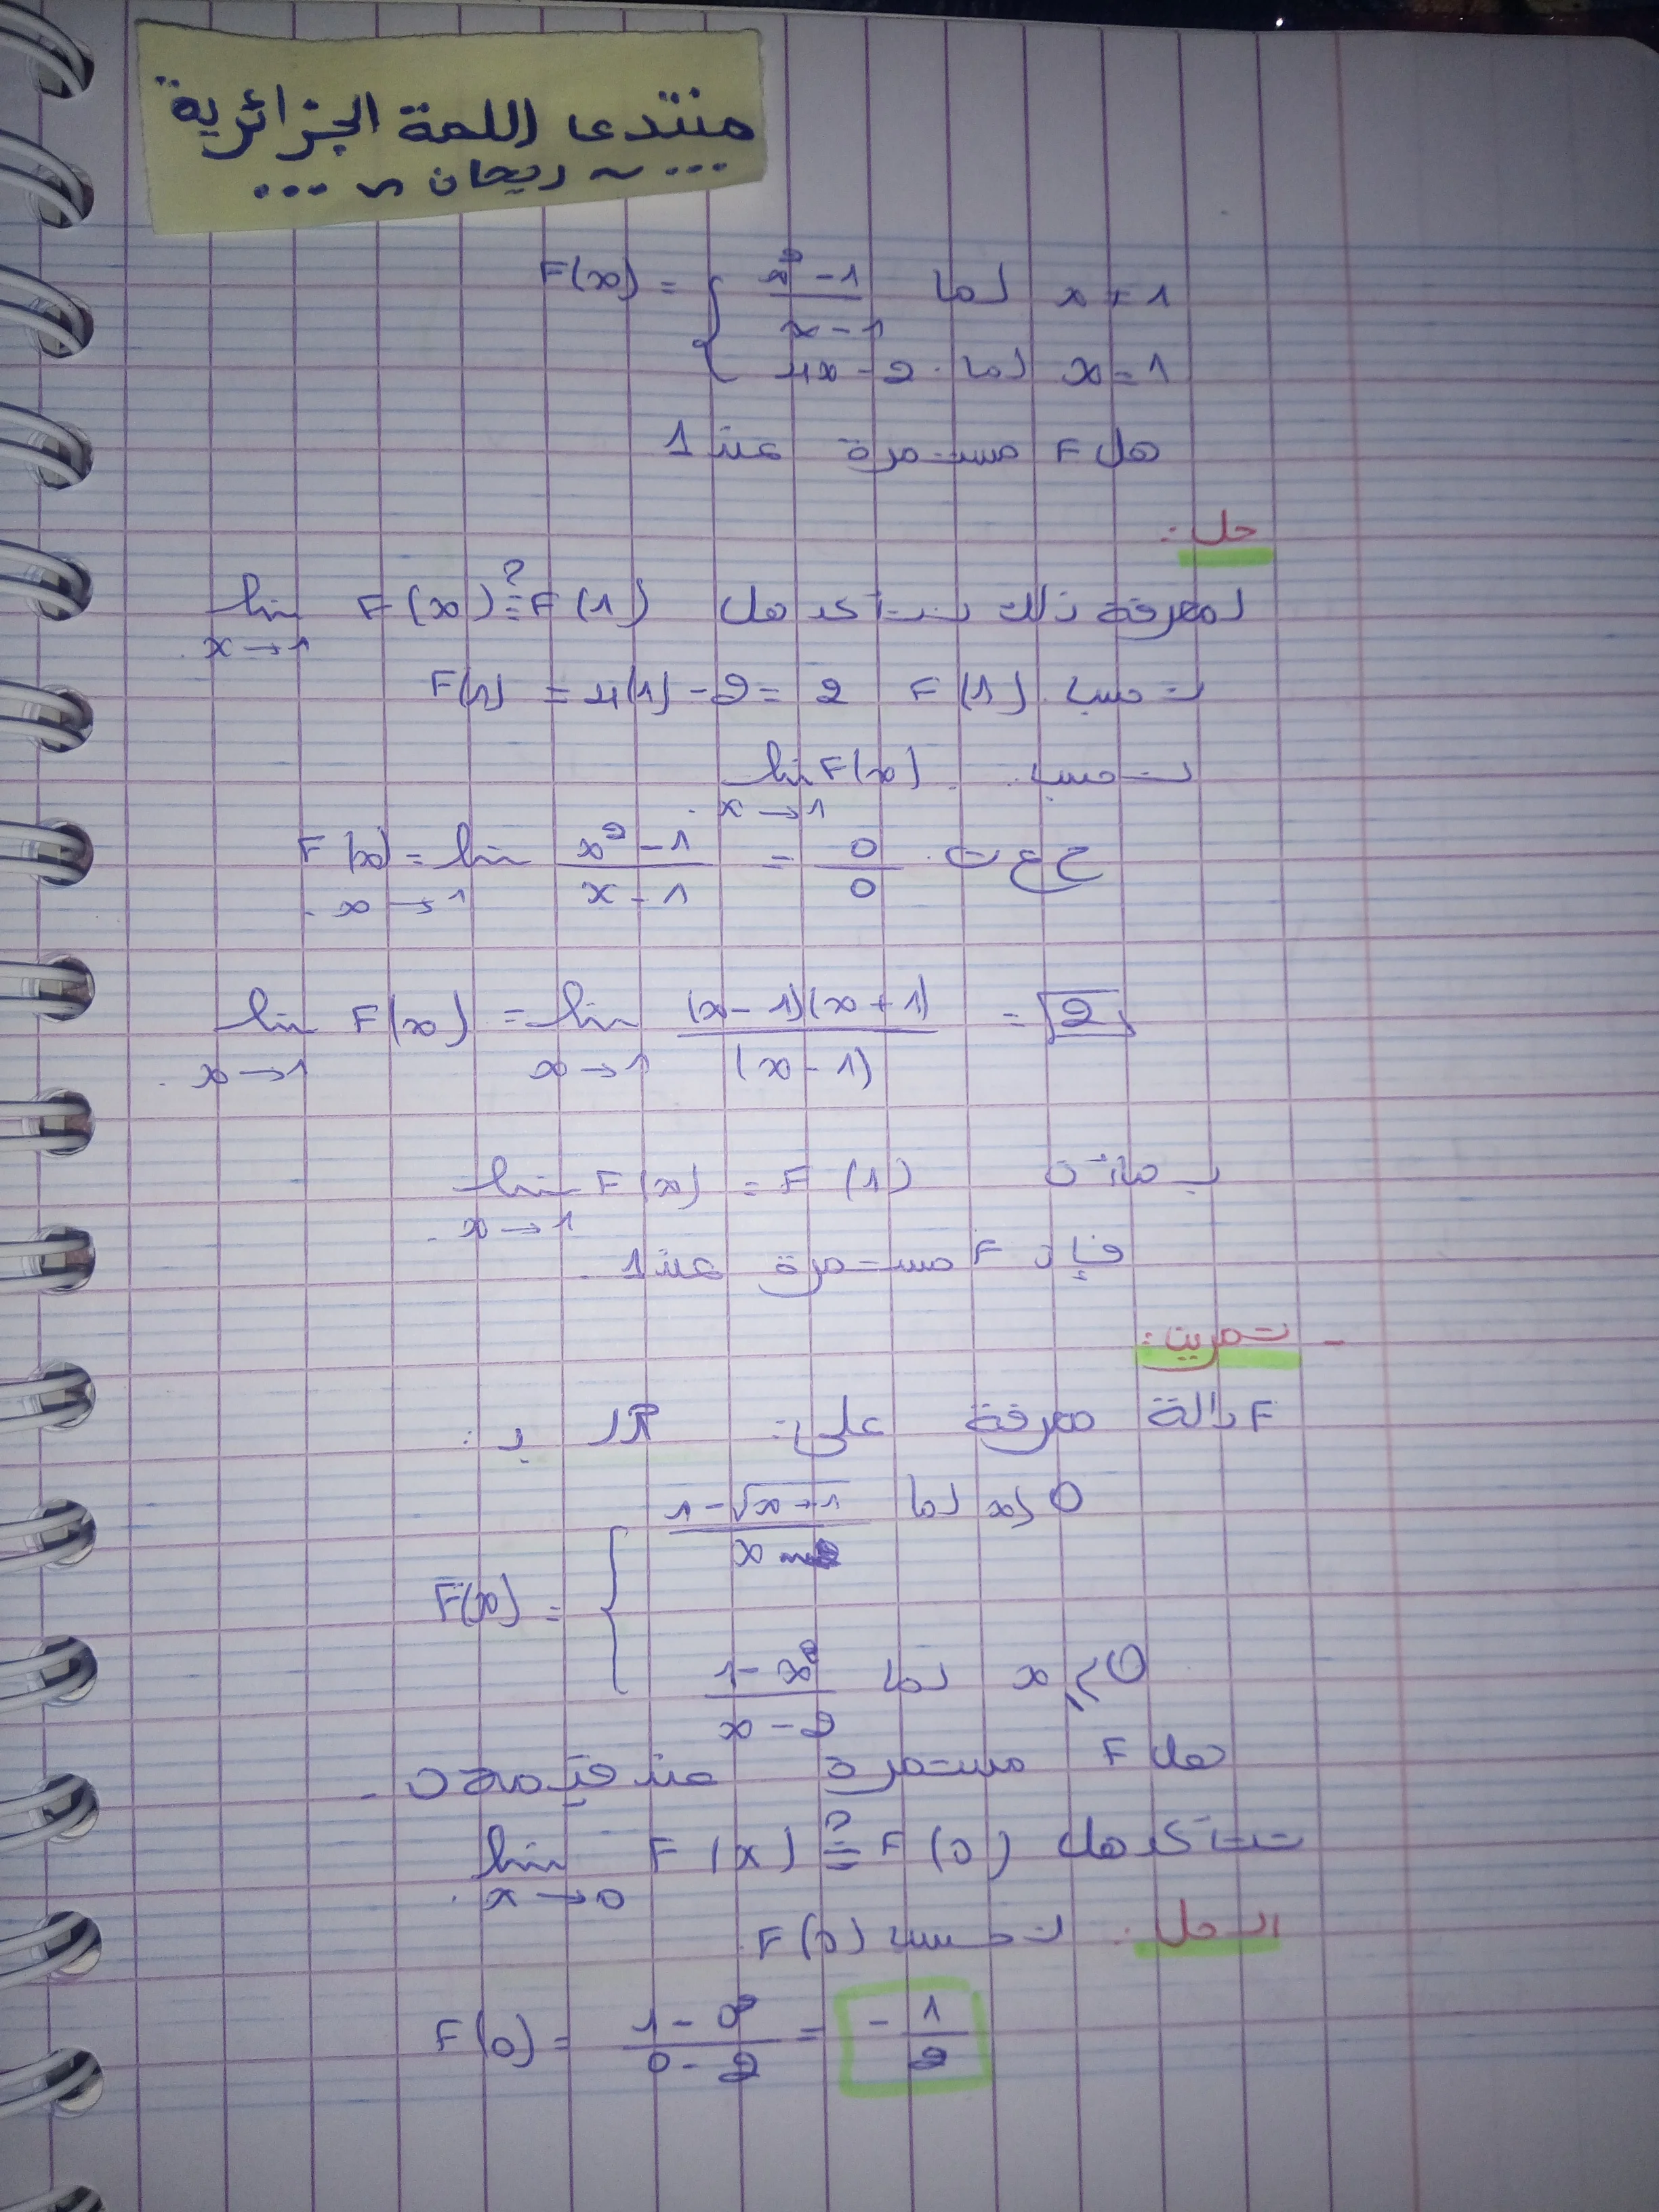 منتدى اللمة الجزائرية
...~ ريحان ~...
F(x) = { x² - 1 / x - 1 لما x ≠ 1
4x - 2 لما x = 1
هل F مستمرة عند 1
حل:
لمعرفة ذلك نتأكد هل lim F(x) ≟ F(1)
x→1
نحسب F(1) F(1) = 4(1) - 2 = 2
نحسب lim F(x)
x→1
F(x) = lim x² - 1 / x - 1 = 0/0 ح ع ت
x→1
lim F(x) = lim (x-1)(x+1) / (x-1) = 2
x→1 x→1
بمأن lim F(x) = F(1)
x→1
فإن F مستمرة عند 1
- تمرين:
F دالة معرفة على: ℝ بـ:
F(x) = { 1 - √x+1 / x لما x < 0
1 - x² / x - 2 لما x ≥ 0
هل F مستمرة عند
نتأكد هل lim F(x) ≟ F(0)
x→0
الحل: نحسب F(0)
F(0) = 1 - 0² / 0 - 2 = - 1/2